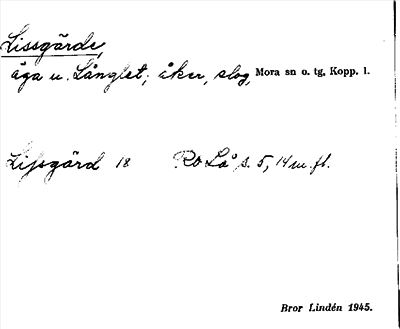 Lissgärde,
äga u. Långlet; åker, slog, Mora sn o. tg, Kopp. l.
Lissgärd 18 RO Lå s. 5, 14 m. fl.
Bror Lindén 1945.